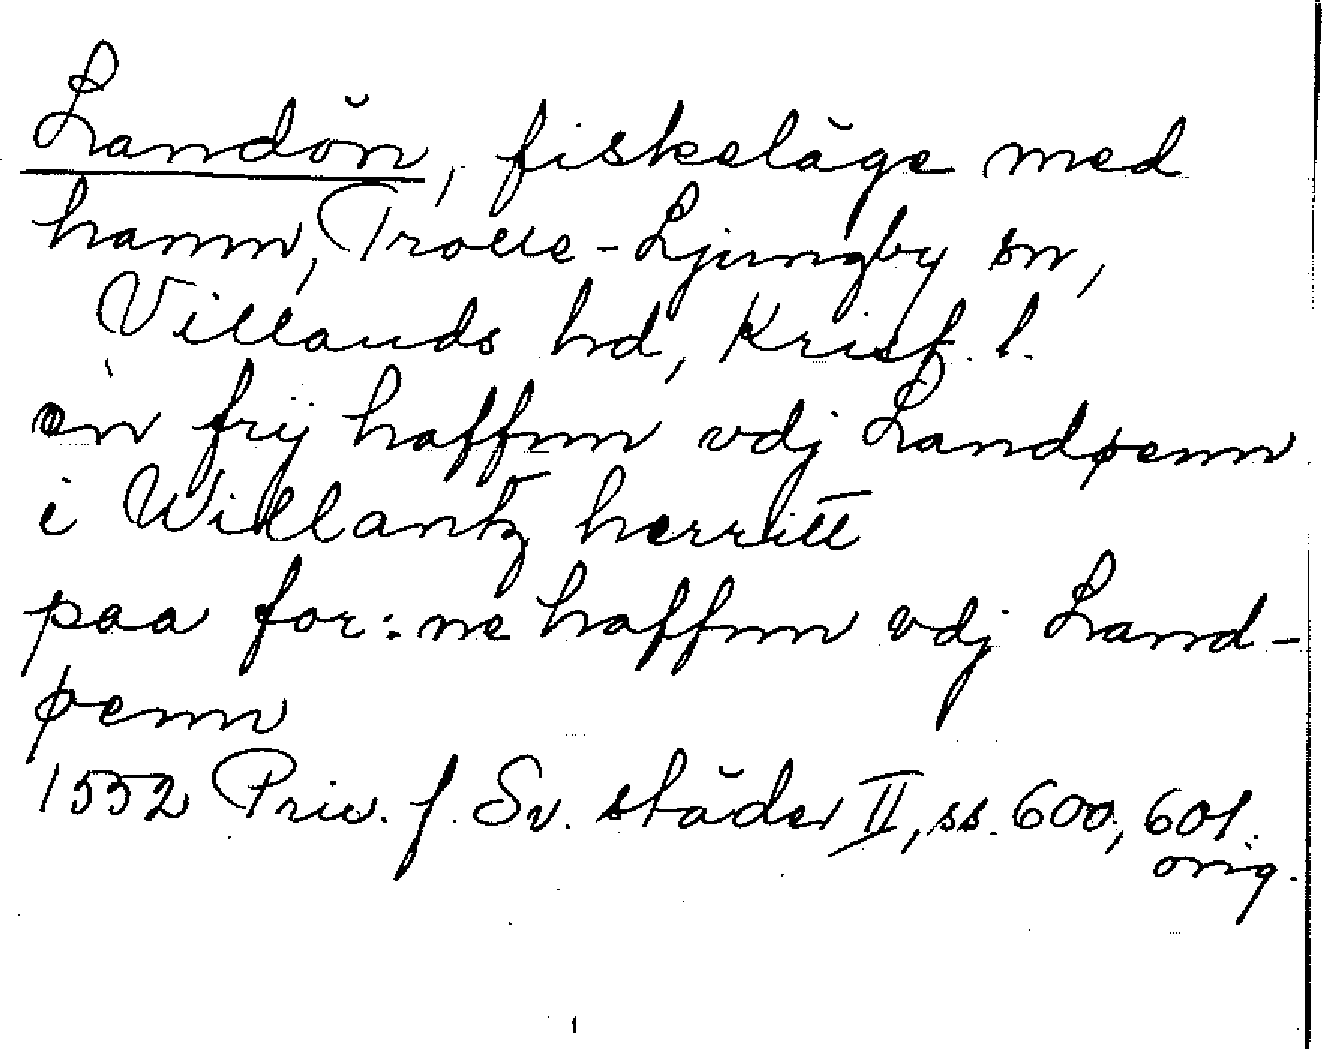 Landön, fiskeläge med
hamn, Trolle-Ljungby sn,
Villands hd, Krist. l.
en frij haffnn vdj Landøenn
i Willantz herritt
paa for:ne haffnn vdj Land-
øenn
1552 Priv. f. Sv. städer II, ss. 600, 601.
orig.